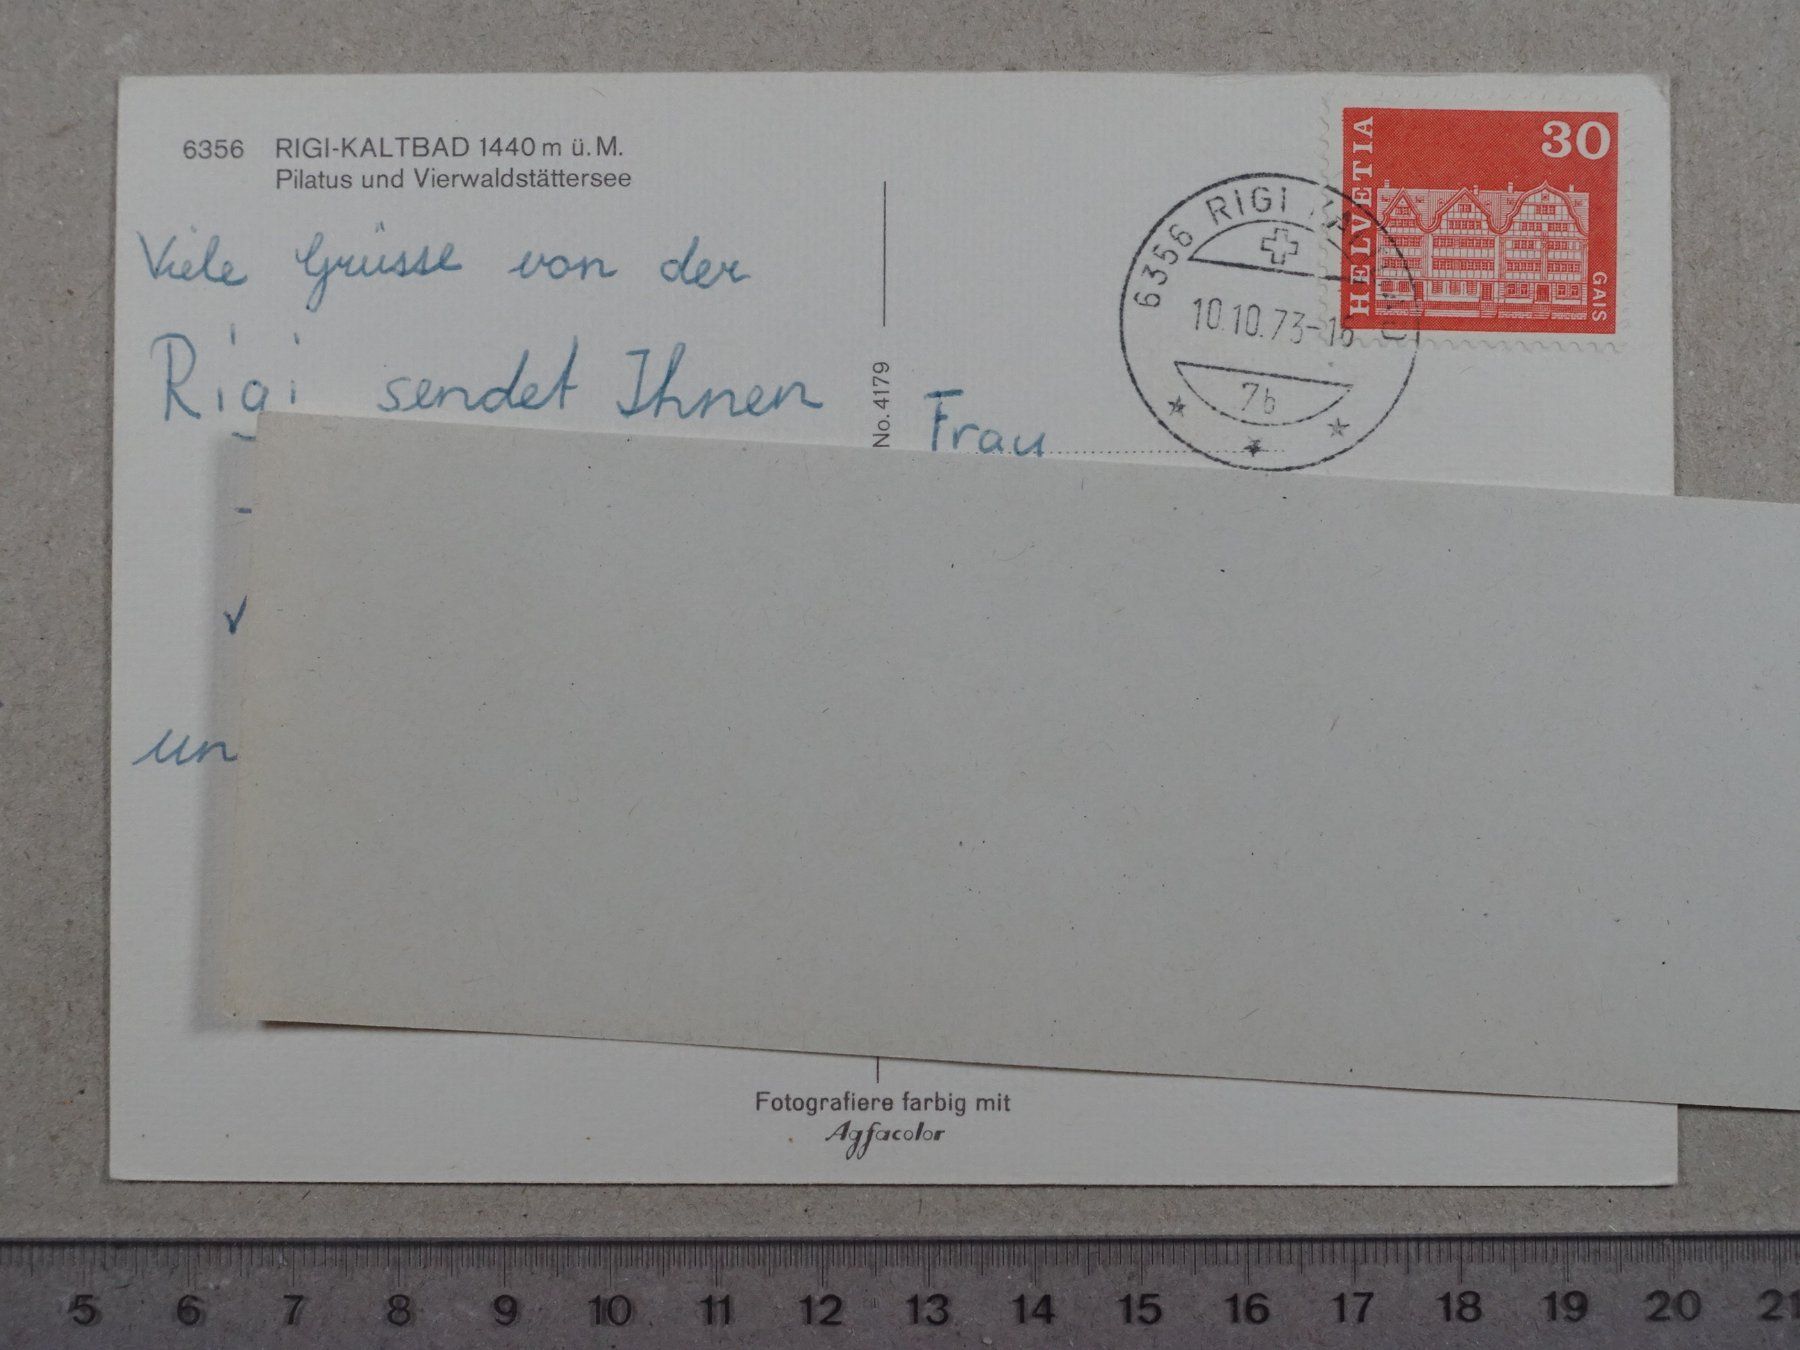 6356 RIGI-KALTBAD 1440 m ü. M.
Pilatus und Vierwaldstättersee
Viele Grüsse von der
Rigi sendet Ihnen
un
No. 4179
Frau
6356 RIGI
10.10.73-16
7b
HELVETIA
30
GAIS
Fotografiere farbig mit
Agfacolor
5 6 7 8 9 10 11 12 13 14 15 16 17 18 19 20 21